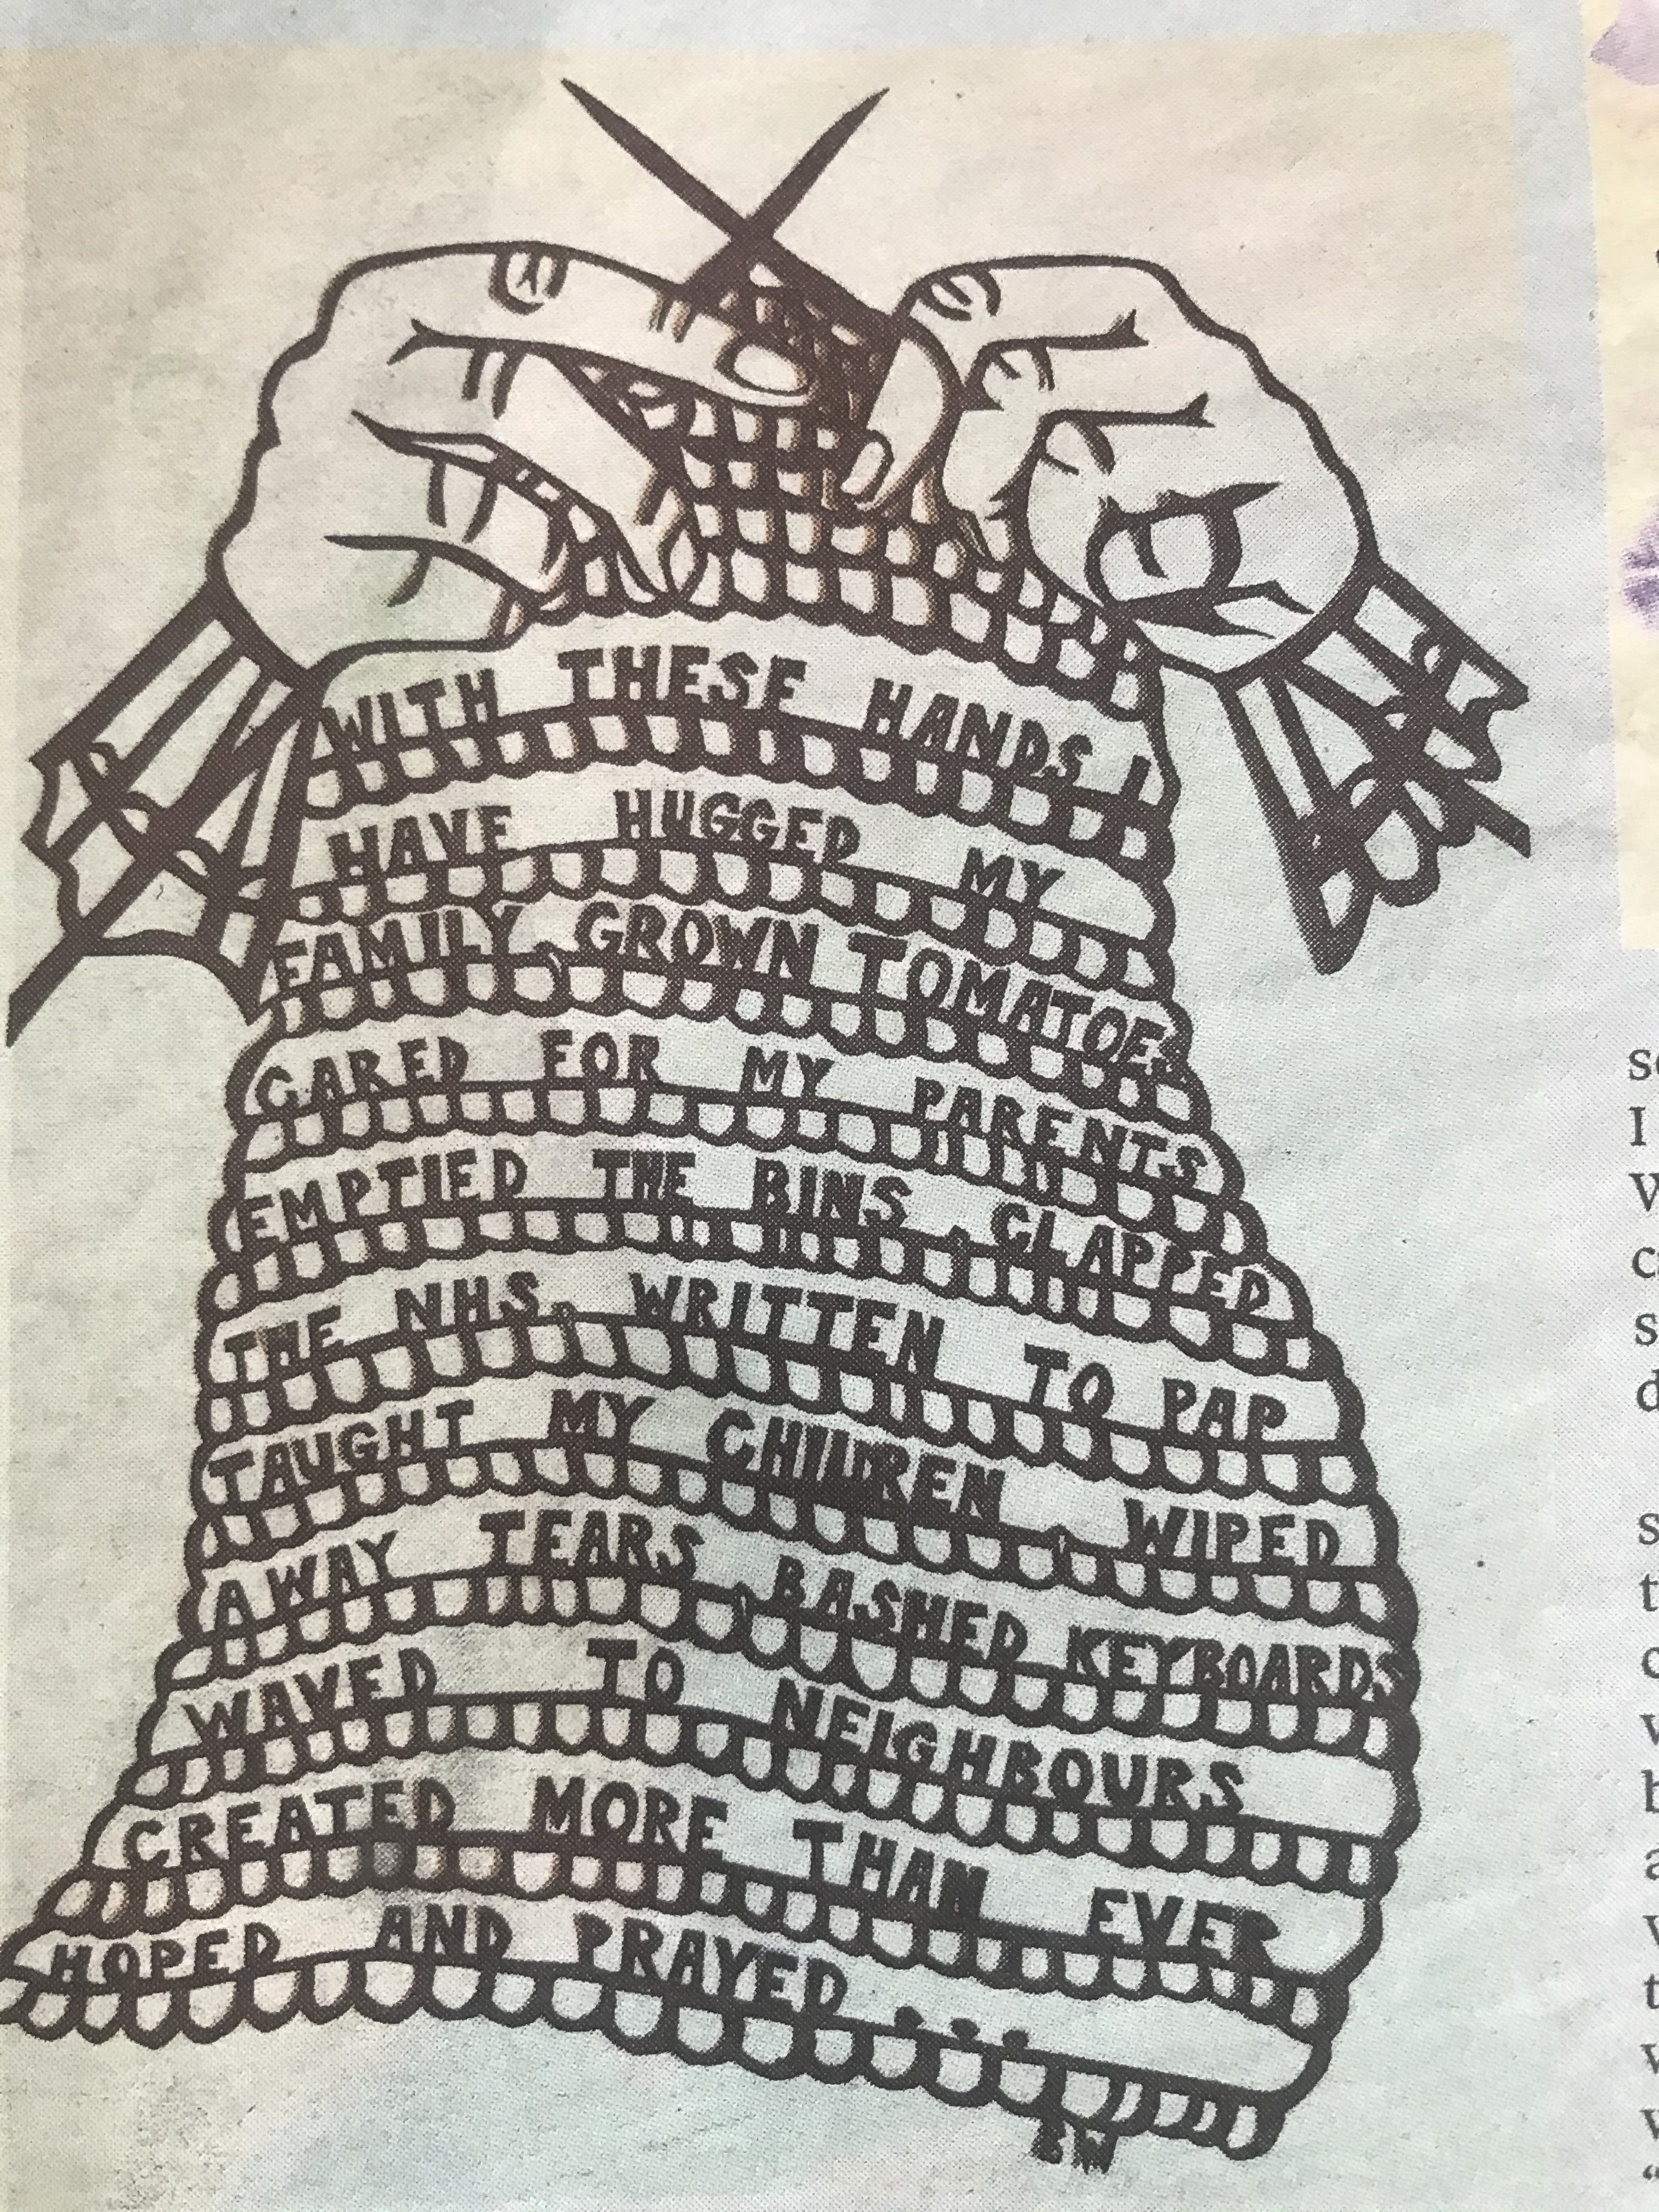 WITH THESE HANDS I
HAVE HUGGED MY
FAMILY, GROWN TOMATOES
CARED FOR MY PARENTS
EMPTIED THE BINS, CLAPPED
THE NHS, WRITTEN TO PAP
TAUGHT MY CHILDREN, WIPED
AWAY TEARS, BASHED KEYBOARDS
WAVED TO NEIGHBOURS
CREATED MORE THAN EVER
HOPED AND PRAYED....
EW
I